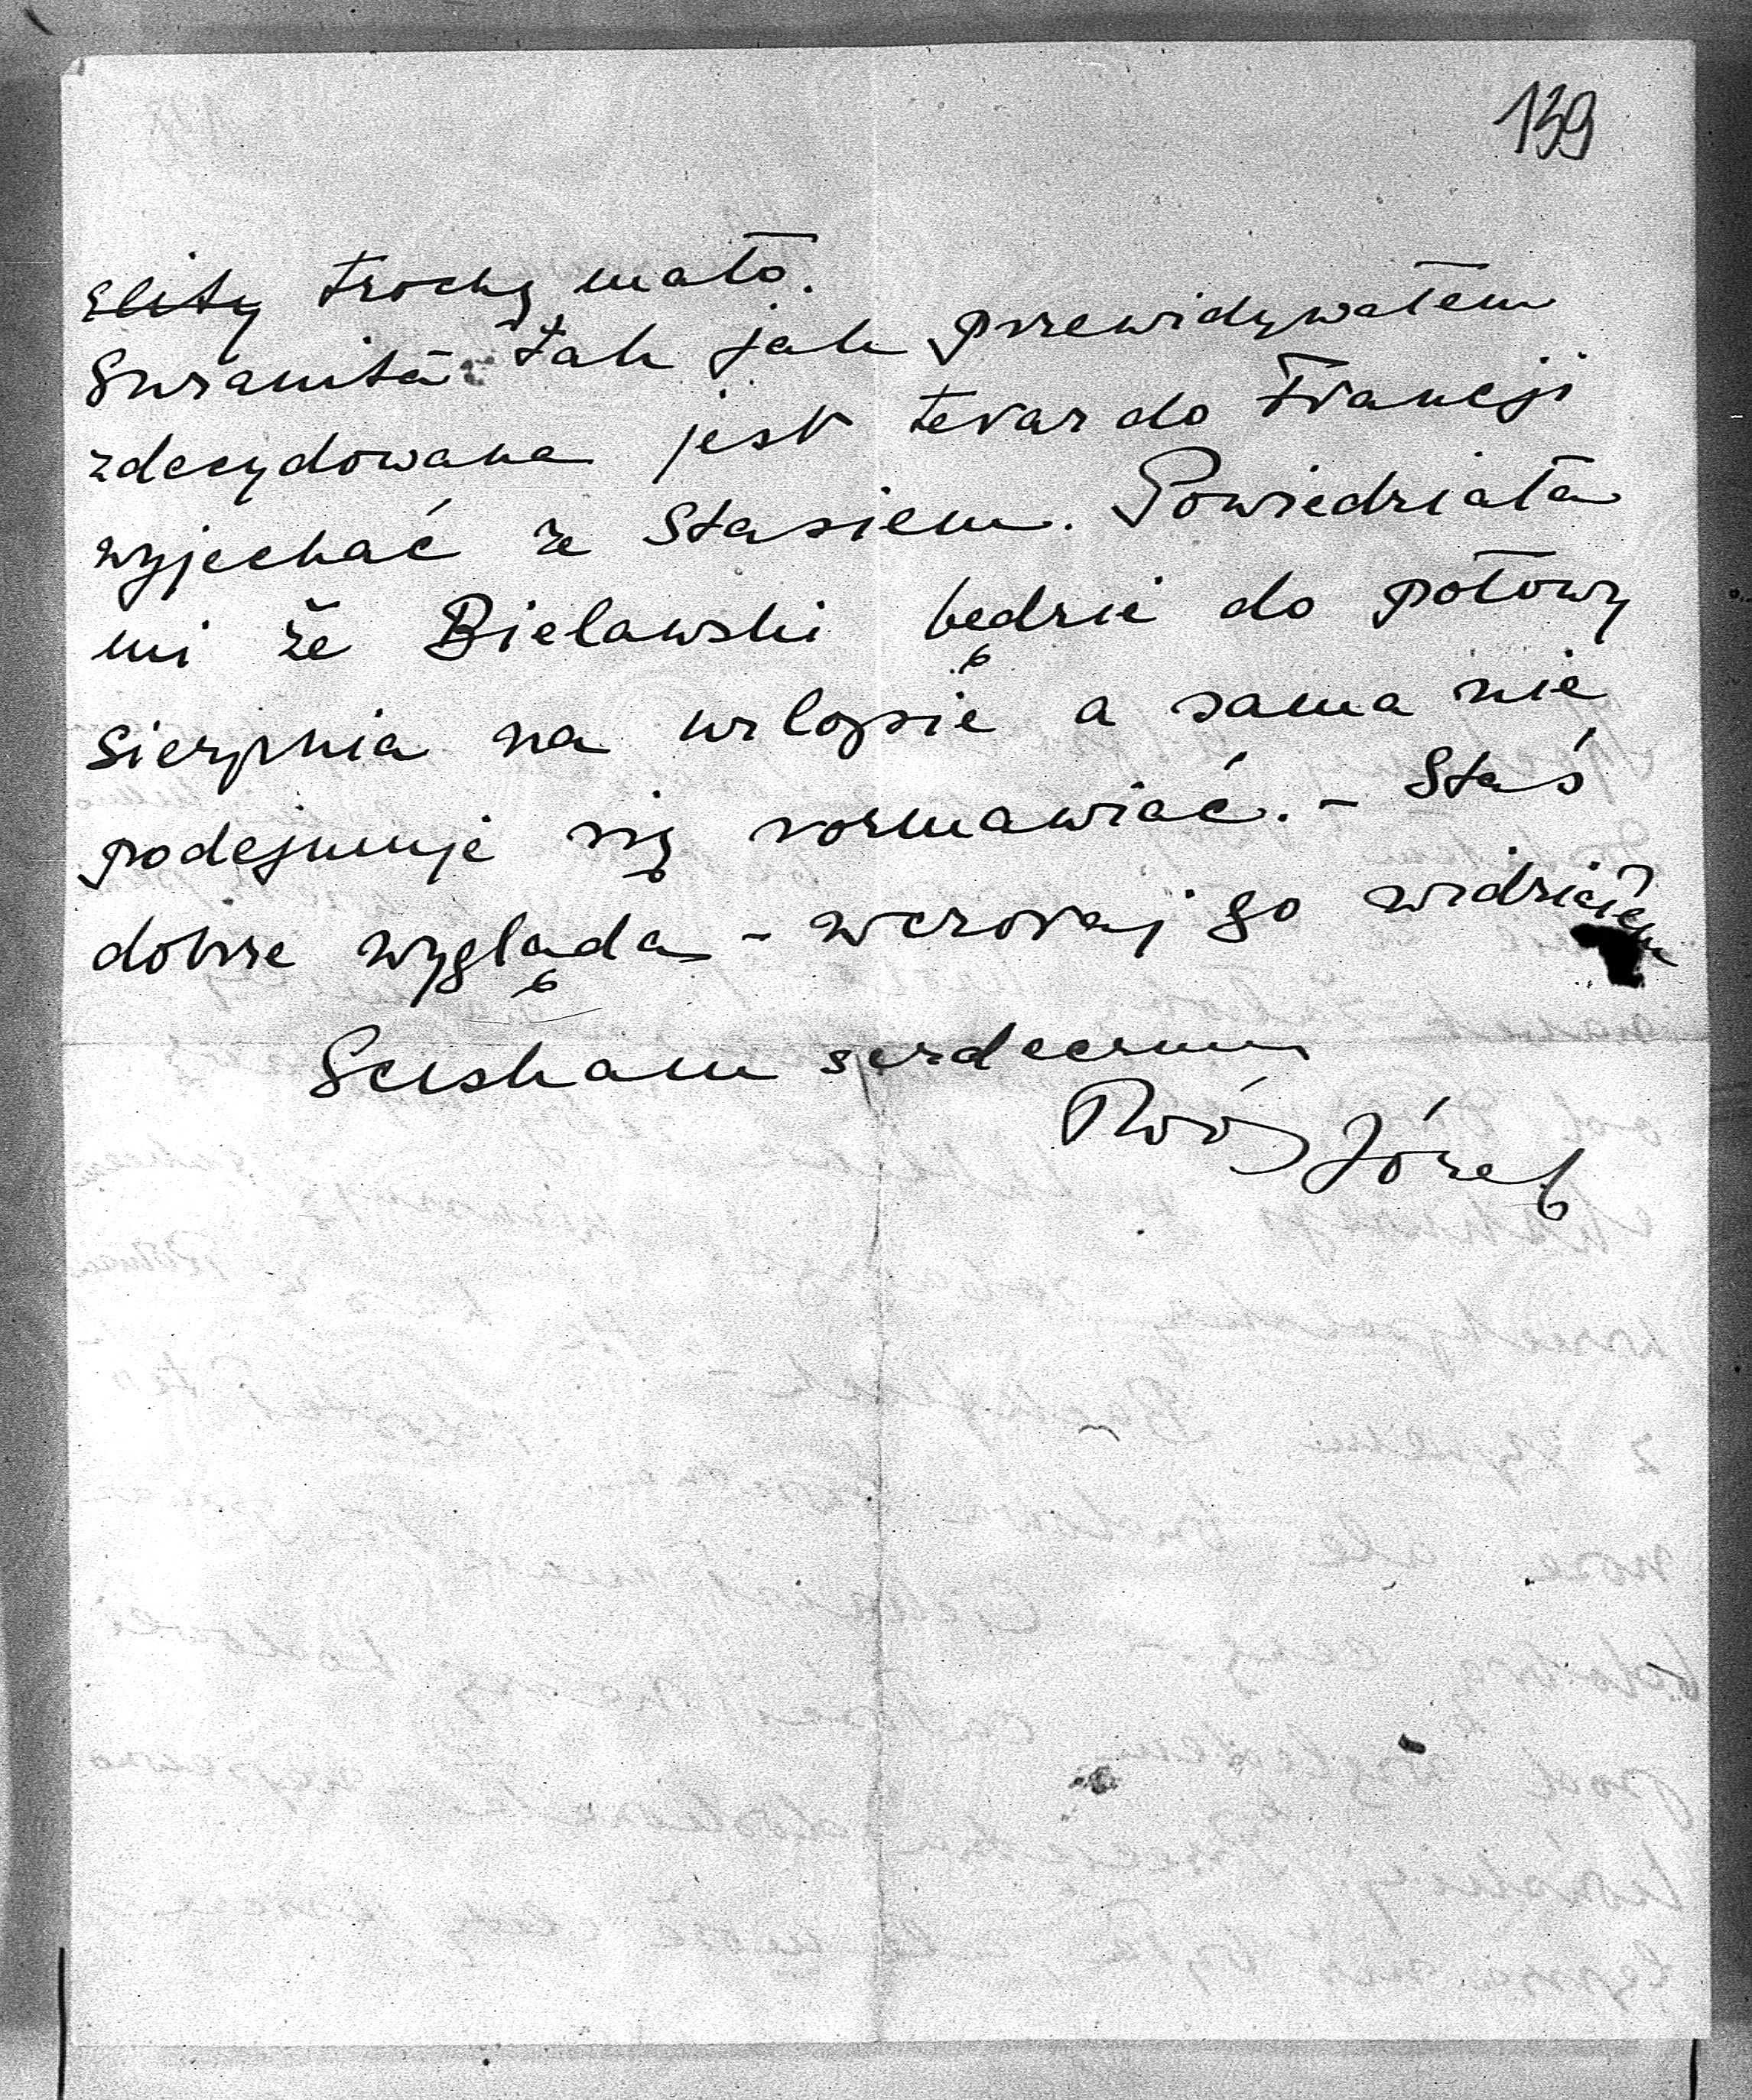 139
elity trochę mało.
tak jak przewidywałem
zdecydowana jest teraz do Francji
wyjechać ze Stasiem. Powiedziała
mi że Bielawski będzie do połowy
sierpnia na urlopie a sama nie
podejmuje się rozmawiać. – Staś
dobrze wygląda – wczoraj go widziałem
Sciskam serdecznie
Józef